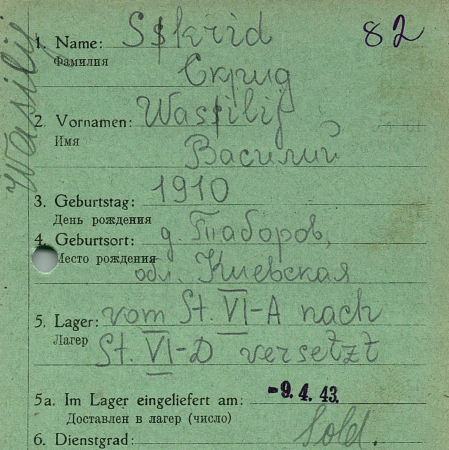 Wasilij
1. Name: Sskrid 82
Фамилия
Скрид
2. Vornamen: Wassilij
Имя
Василий
3. Geburtstag: 1910
День рождения
4. Geburtsort: д. Таборов,
Место рождения обл. Киевская
5. Lager: vom St. VI-A nach
Лагер St. VI-D versetzt
5a. Im Lager eingeliefert am: -9. 4. 43.
Доставлен в лагер (число)
6. Dienstgrad: Sold.